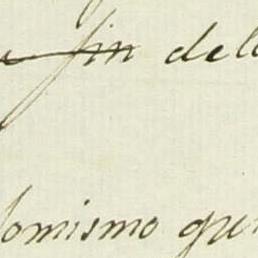 fin dell
lomismo que